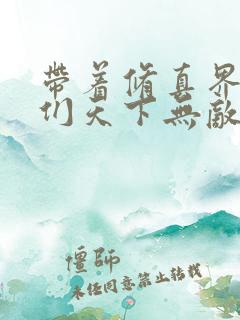 帶着脩真界
们天下無敵
僵師
未经同意禁止转载